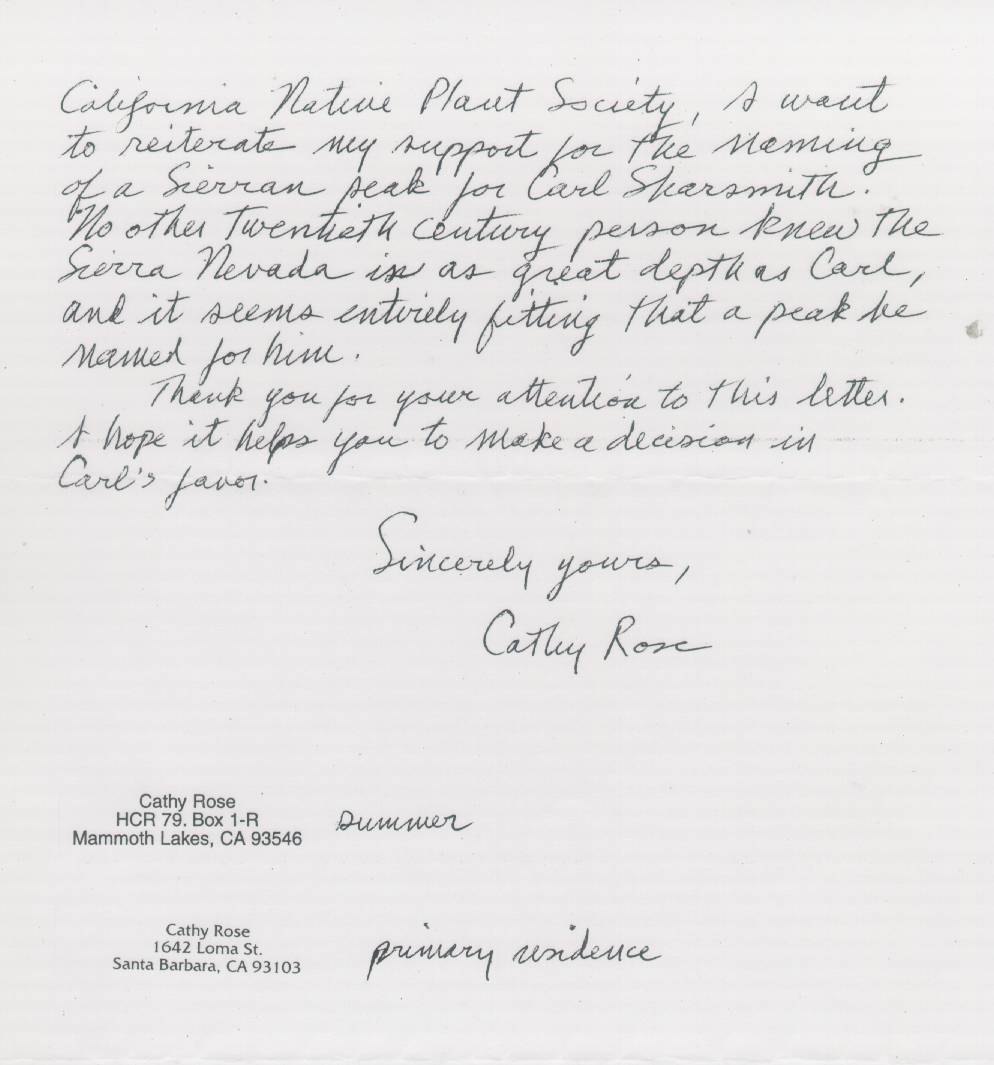 California Native Plant Society, I want
to reiterate my support for the naming
of a Sierran peak for Carl Sharsmith.
No other Twentieth century person knew the
Sierra Nevada in as great depth as Carl,
and it seems entirely fitting that a peak be
named for him.
Thank you for your attention to this letter.
I hope it helps you to make a decision in
Carl's favor.
Sincerely yours,
Cathy Rose
Cathy Rose
HCR 79. Box 1-R
Mammoth Lakes, CA 93546
summer
Cathy Rose
1642 Loma St.
Santa Barbara, CA 93103
primary residence